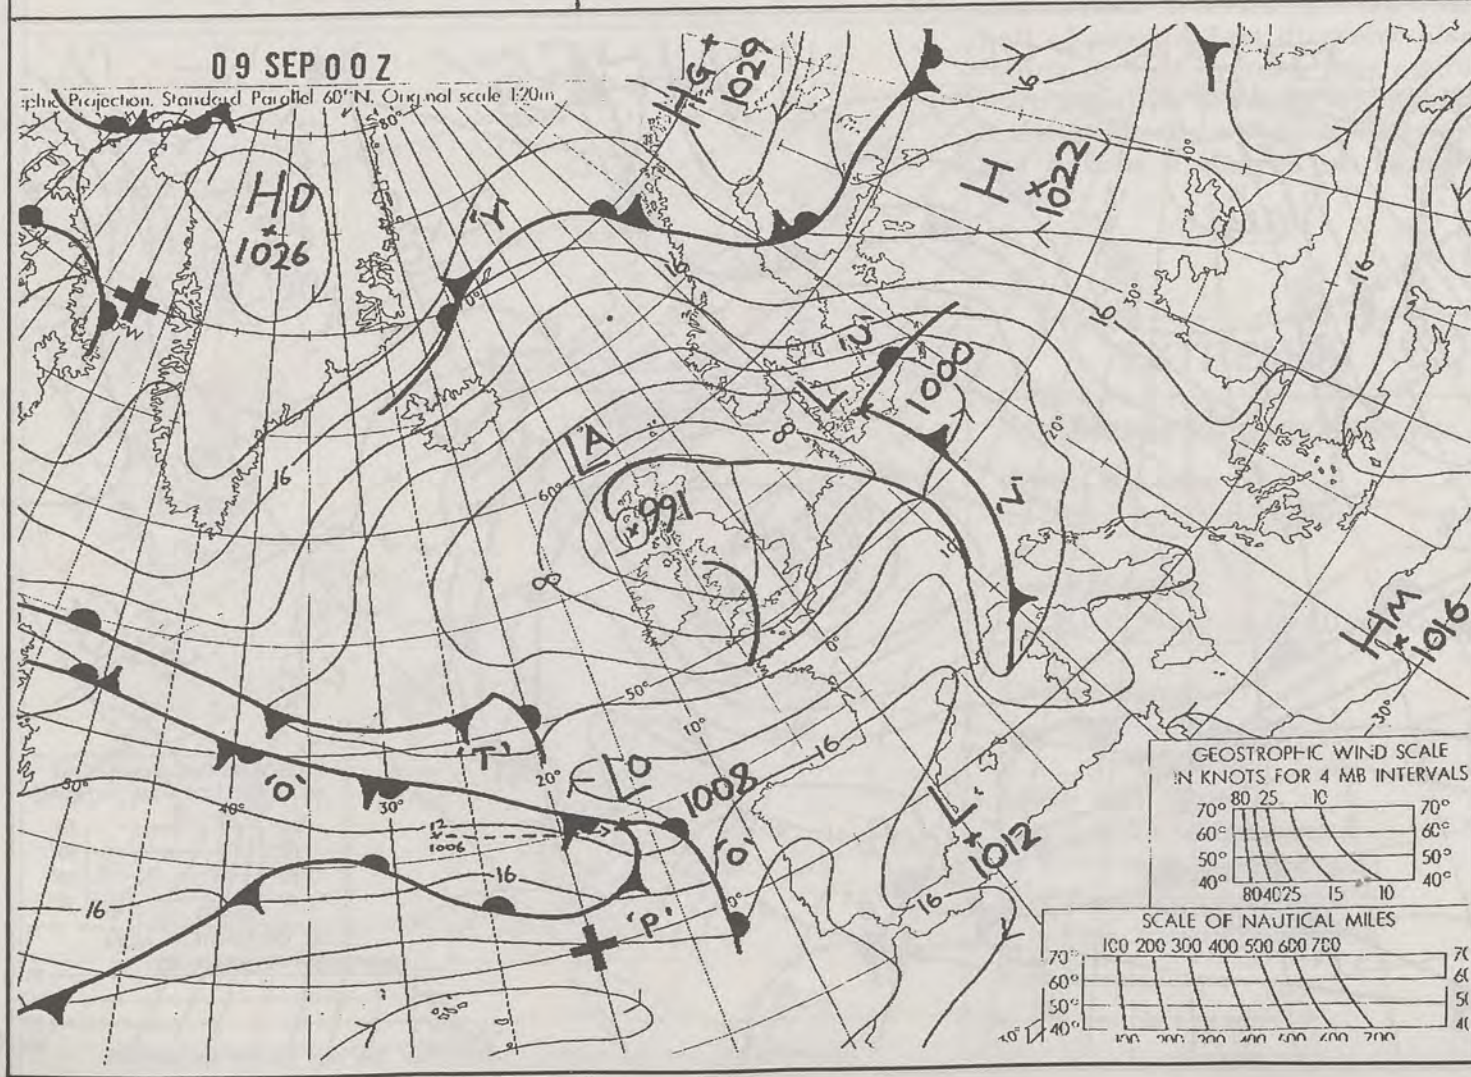 09 SEP 00Z
Projection, Standard Parallel 60°N. Original scale 1:20m
80°
HG
1029
16
H
1022
10°
HD
1026
'Y'
0°
16
16
30°
16
'U'
L
1000
8
20°
LA
60°
991
16
8
'Z'
10°
0°
HM
1016
30°
50°
10°
'T'
20°
'O'
50°
40°
30°
LO
1008
16
12
1006
'O'
L
1012
16
16
16
'P'
GEOSTROPHIC WIND SCALE
IN KNOTS FOR 4 MB INTERVALS
80 25 10
70° 70°
60° 60°
50° 50°
40° 40°
80 40 25 15 10
SCALE OF NAUTICAL MILES
100 200 300 400 500 600 700
70° 70
60° 60
50° 50
40° 40
100 200 300 400 500 600 700